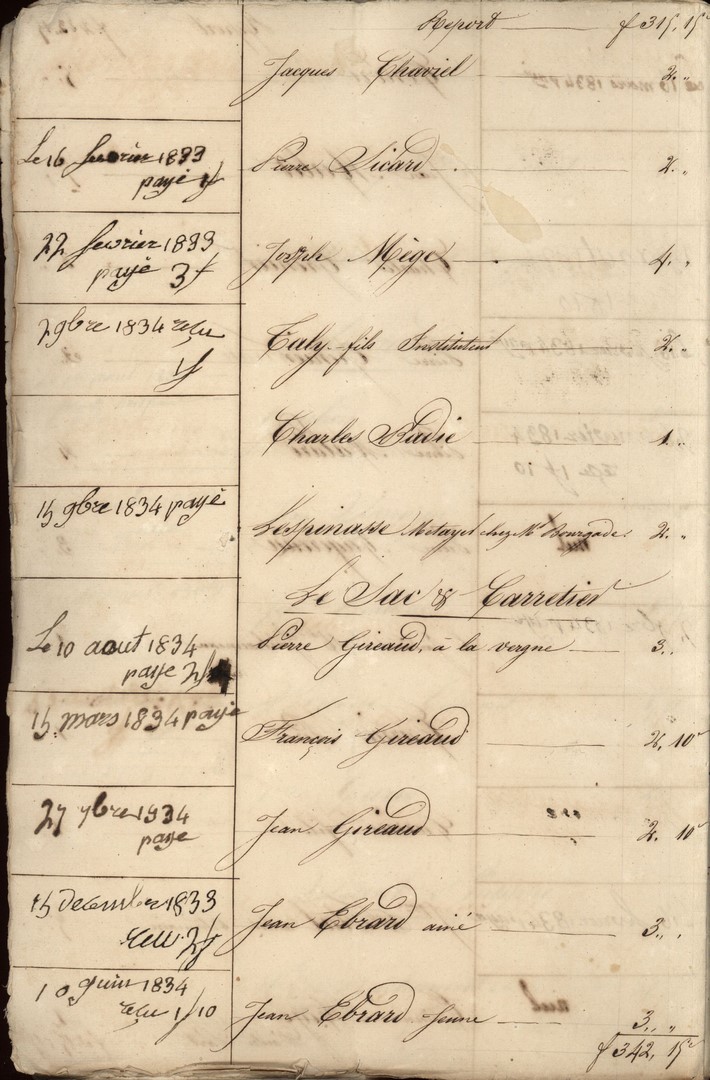 Report — f 315, 15c
Jacques Chaviel — 2. "
Le 16 fevrier 1833
payé 1f
Pierre Sicard — 2. "
22 fevrier 1833
payé 3f
Joseph Mège — 4. "
2 9bre 1834 reçu
1f
Taly fils Instituteur — 2. "
Charles Badie — 1. "
15 9bre 1834 payé
Lespinasse Metayer chez Mr Bourgade. 2. "
Le Sac & Carretier
Le 10 aout 1834
paye 2f
Pierre Gireaud, à la vergne — 3. "
15 mars 1834 payé
François Gireaud — 2, 10c
27 9bre 1934
paye
Jean Gireaud — 2. 10c
15 decembre 1833
reçu 2f
Jean Ebrard ainé — 3. "
10 guin 1834
reçu 1f 10
Jean Ebrard Jeune — 3. "
f 342, 15c